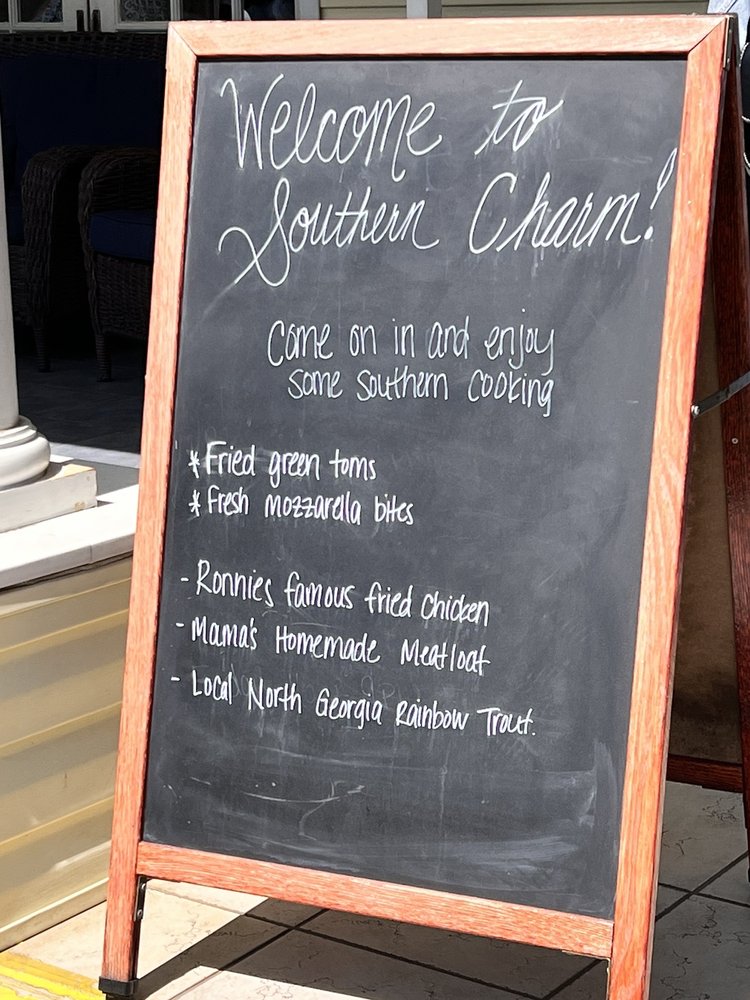 Welcome to
Southern Charm!
Come on in and enjoy
some southern cooking
*Fried green toms
*Fresh mozzarella bites
- Ronnies famous fried chicken
- Mama's Homemade Meatloaf
- Local North Georgia Rainbow Trout.